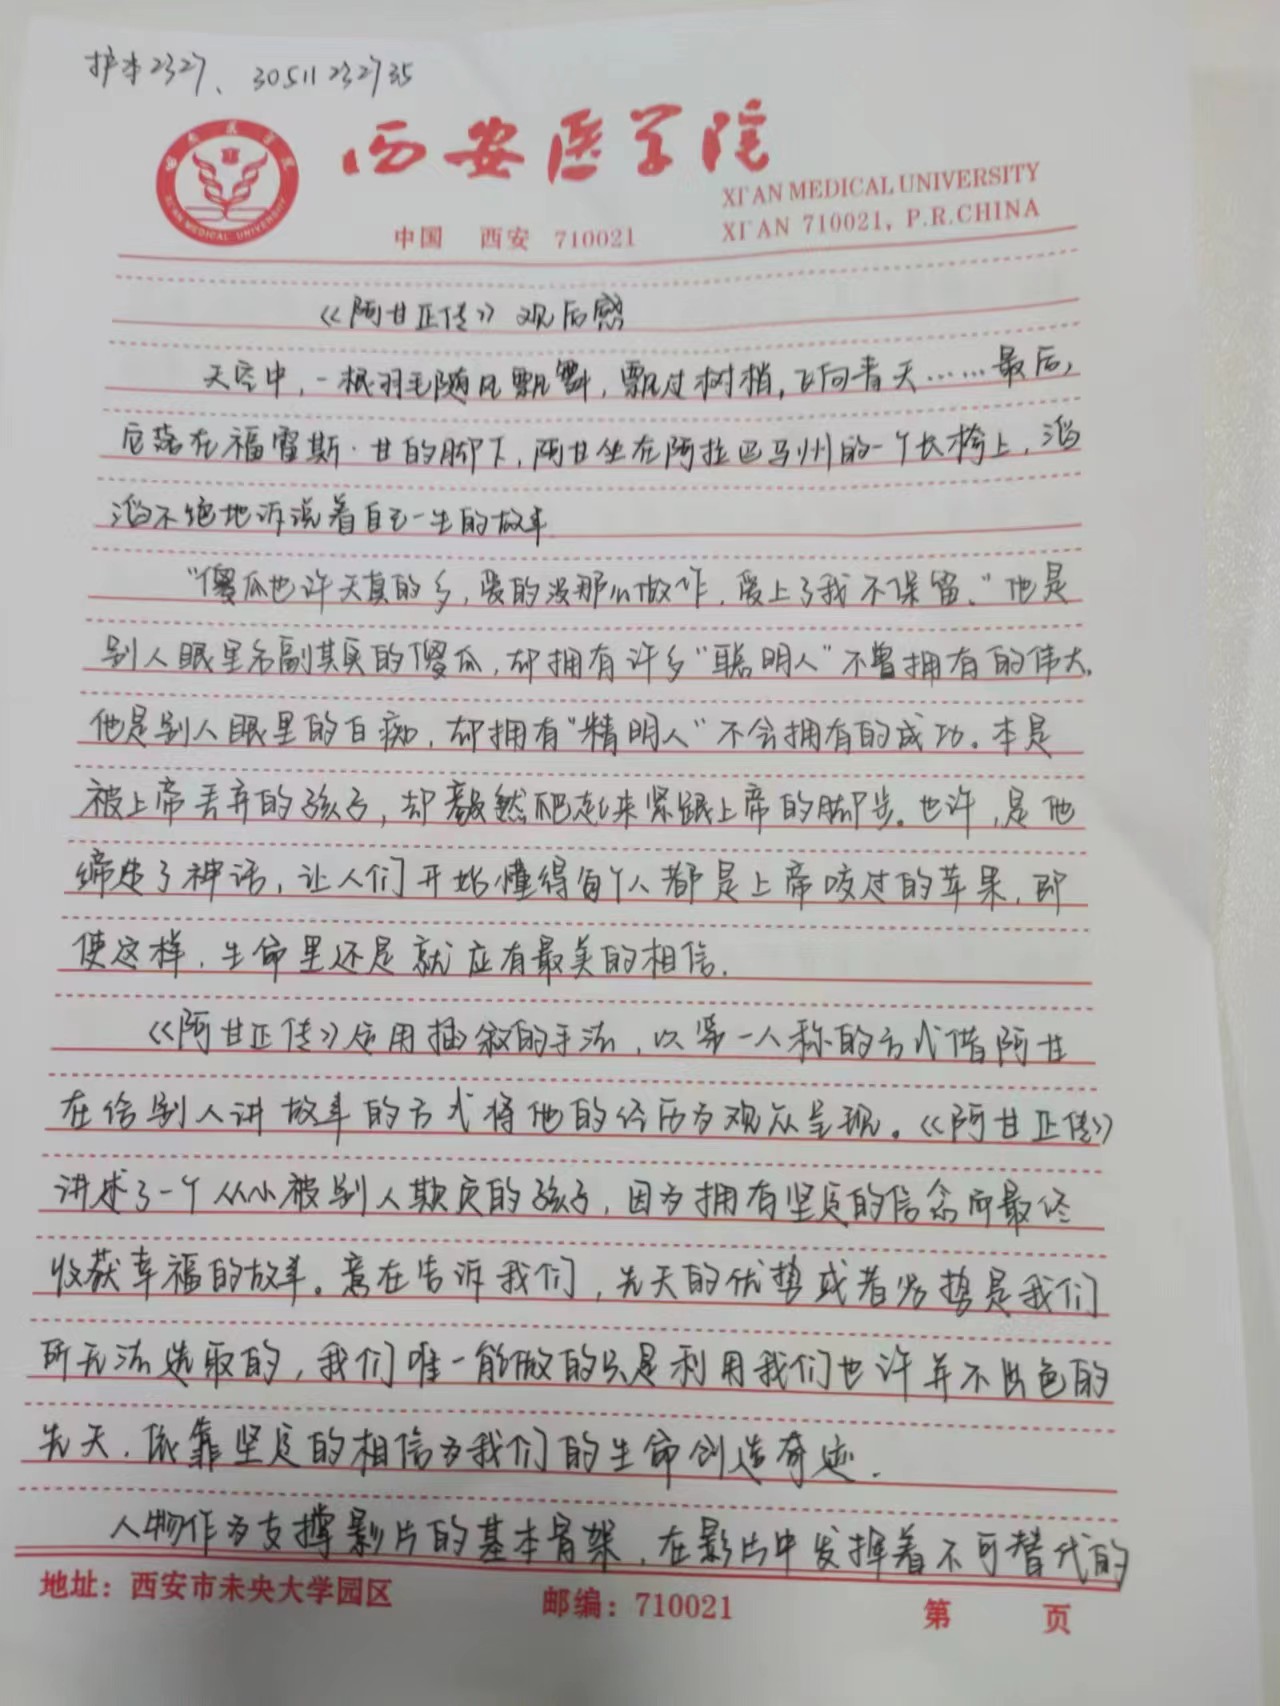 护本2327、30511232735
西安医学院
XI'AN MEDICAL UNIVERSITY
中国 西安 710021
XI'AN 710021, P.R.CHINA
《阿甘正传》观后感
天空中，一根羽毛随风飘舞，飘过树梢，飞向青天……最后，
它落在福雷斯·甘的脚下，阿甘坐在阿拉巴马州的一个长椅上，滔
滔不绝地诉说着自己一生的故事
“傻瓜也许天真的多，爱的没那么做作，爱上了我不保留。”他是
别人眼里名副其实的傻瓜，却拥有许多“聪明人”不曾拥有的伟大。
他是别人眼里的白痴，却拥有“精明人”不会拥有的成功。本是
被上帝丢弃的孩子，却毅然爬起来紧跟上帝的脚步。也许，是他
缔造了神话，让人们开始懂得每个人都是上帝咬过的苹果，即
使这样，生命里还是就应有最美的相信.
《阿甘正传》运用插叙的手法，以第一人称的方式借阿甘
在给别人讲故事的方式将他的经历为观众呈现。《阿甘正传》
讲述了一个从小被别人欺负的孩子，因为拥有坚定的信念而最终
收获幸福的故事。意在告诉我们，先天的优势或者劣势是我们
所无法选取的，我们唯一能做的只是利用我们也许并不出色的
先天，依靠坚定的相信为我们的生命创造奇迹.
人物作为支撑影片的基本骨架，在影片中发挥着不可替代的
地址：西安市未央大学园区 邮编：710021 第 页